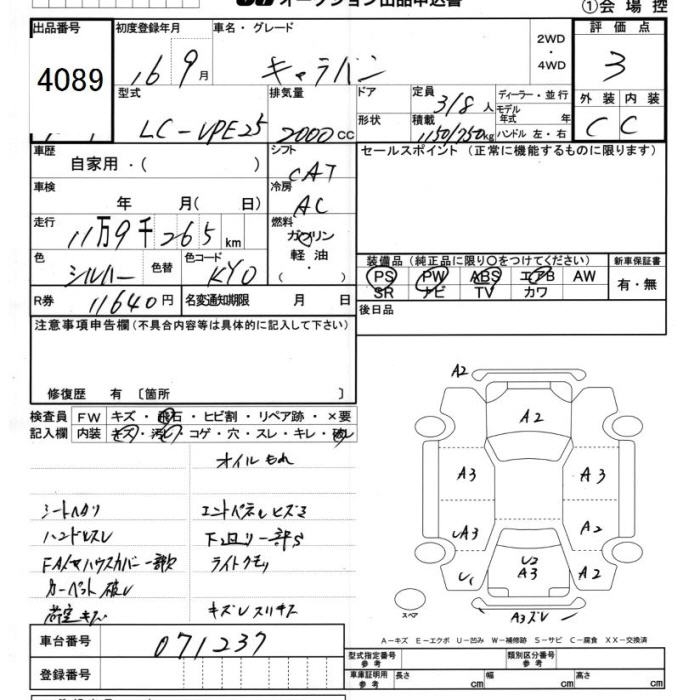 オークション出品申込書
①会場控
出品番号
4089
初度登録年月
16 9月
車名・グレード
キャラバン
2WD
・
4WD
評価点
3
型式
LC-VPE25
排気量
2000cc
ドア
形状
定員
3/8人
積載
1150/750kg
ディーラー・並行
モデル年式 年
ハンドル 左・右
外装 内装
C C
車歴
自家用・( )
シフト
CAT
セールスポイント(正常に機能するものに限ります)
車検
年 月( 日)
冷房
AC
走行
11万9千265km
燃料
ガソリン
軽油
・
( )
色
シルバー
色替
色コード
KY0
装備品(純正品に限り〇をつけてください)
新車保証書
PS PW ABS エアB AW
SR ナビ TV カワ
有・無
R券
11640円
名変通知期限 月 日
後日品
注意事項申告欄(不具合内容等は具体的に記入して下さい)
修復歴 有 〔箇所 〕
検査員
記入欄
FW キズ・飛石・ヒビ割・リペア跡・×要
内装 キズ・汚レ・コゲ・穴・スレ・キレ・破レ
オイルもれ
シートヘタリ
エンドパネルヒズミ
ハンドルスレ
下回リ一部S
ライトクモリ
カーペット破レ
荷室キズ
キズUスリキズ
A2
A2
A3 A3
UA3 A2
U2
A3
U1 A2
スペア
A3ズレ
A－キズ E－エクボ U－凹み W－補修跡 S－サビ C－腐食 XX－交換済
車台番号
071237
登録番号
型式指定番号
参考
類別区分番号
参考
車庫証明用
参考
長さ cm 幅 cm 高さ cm